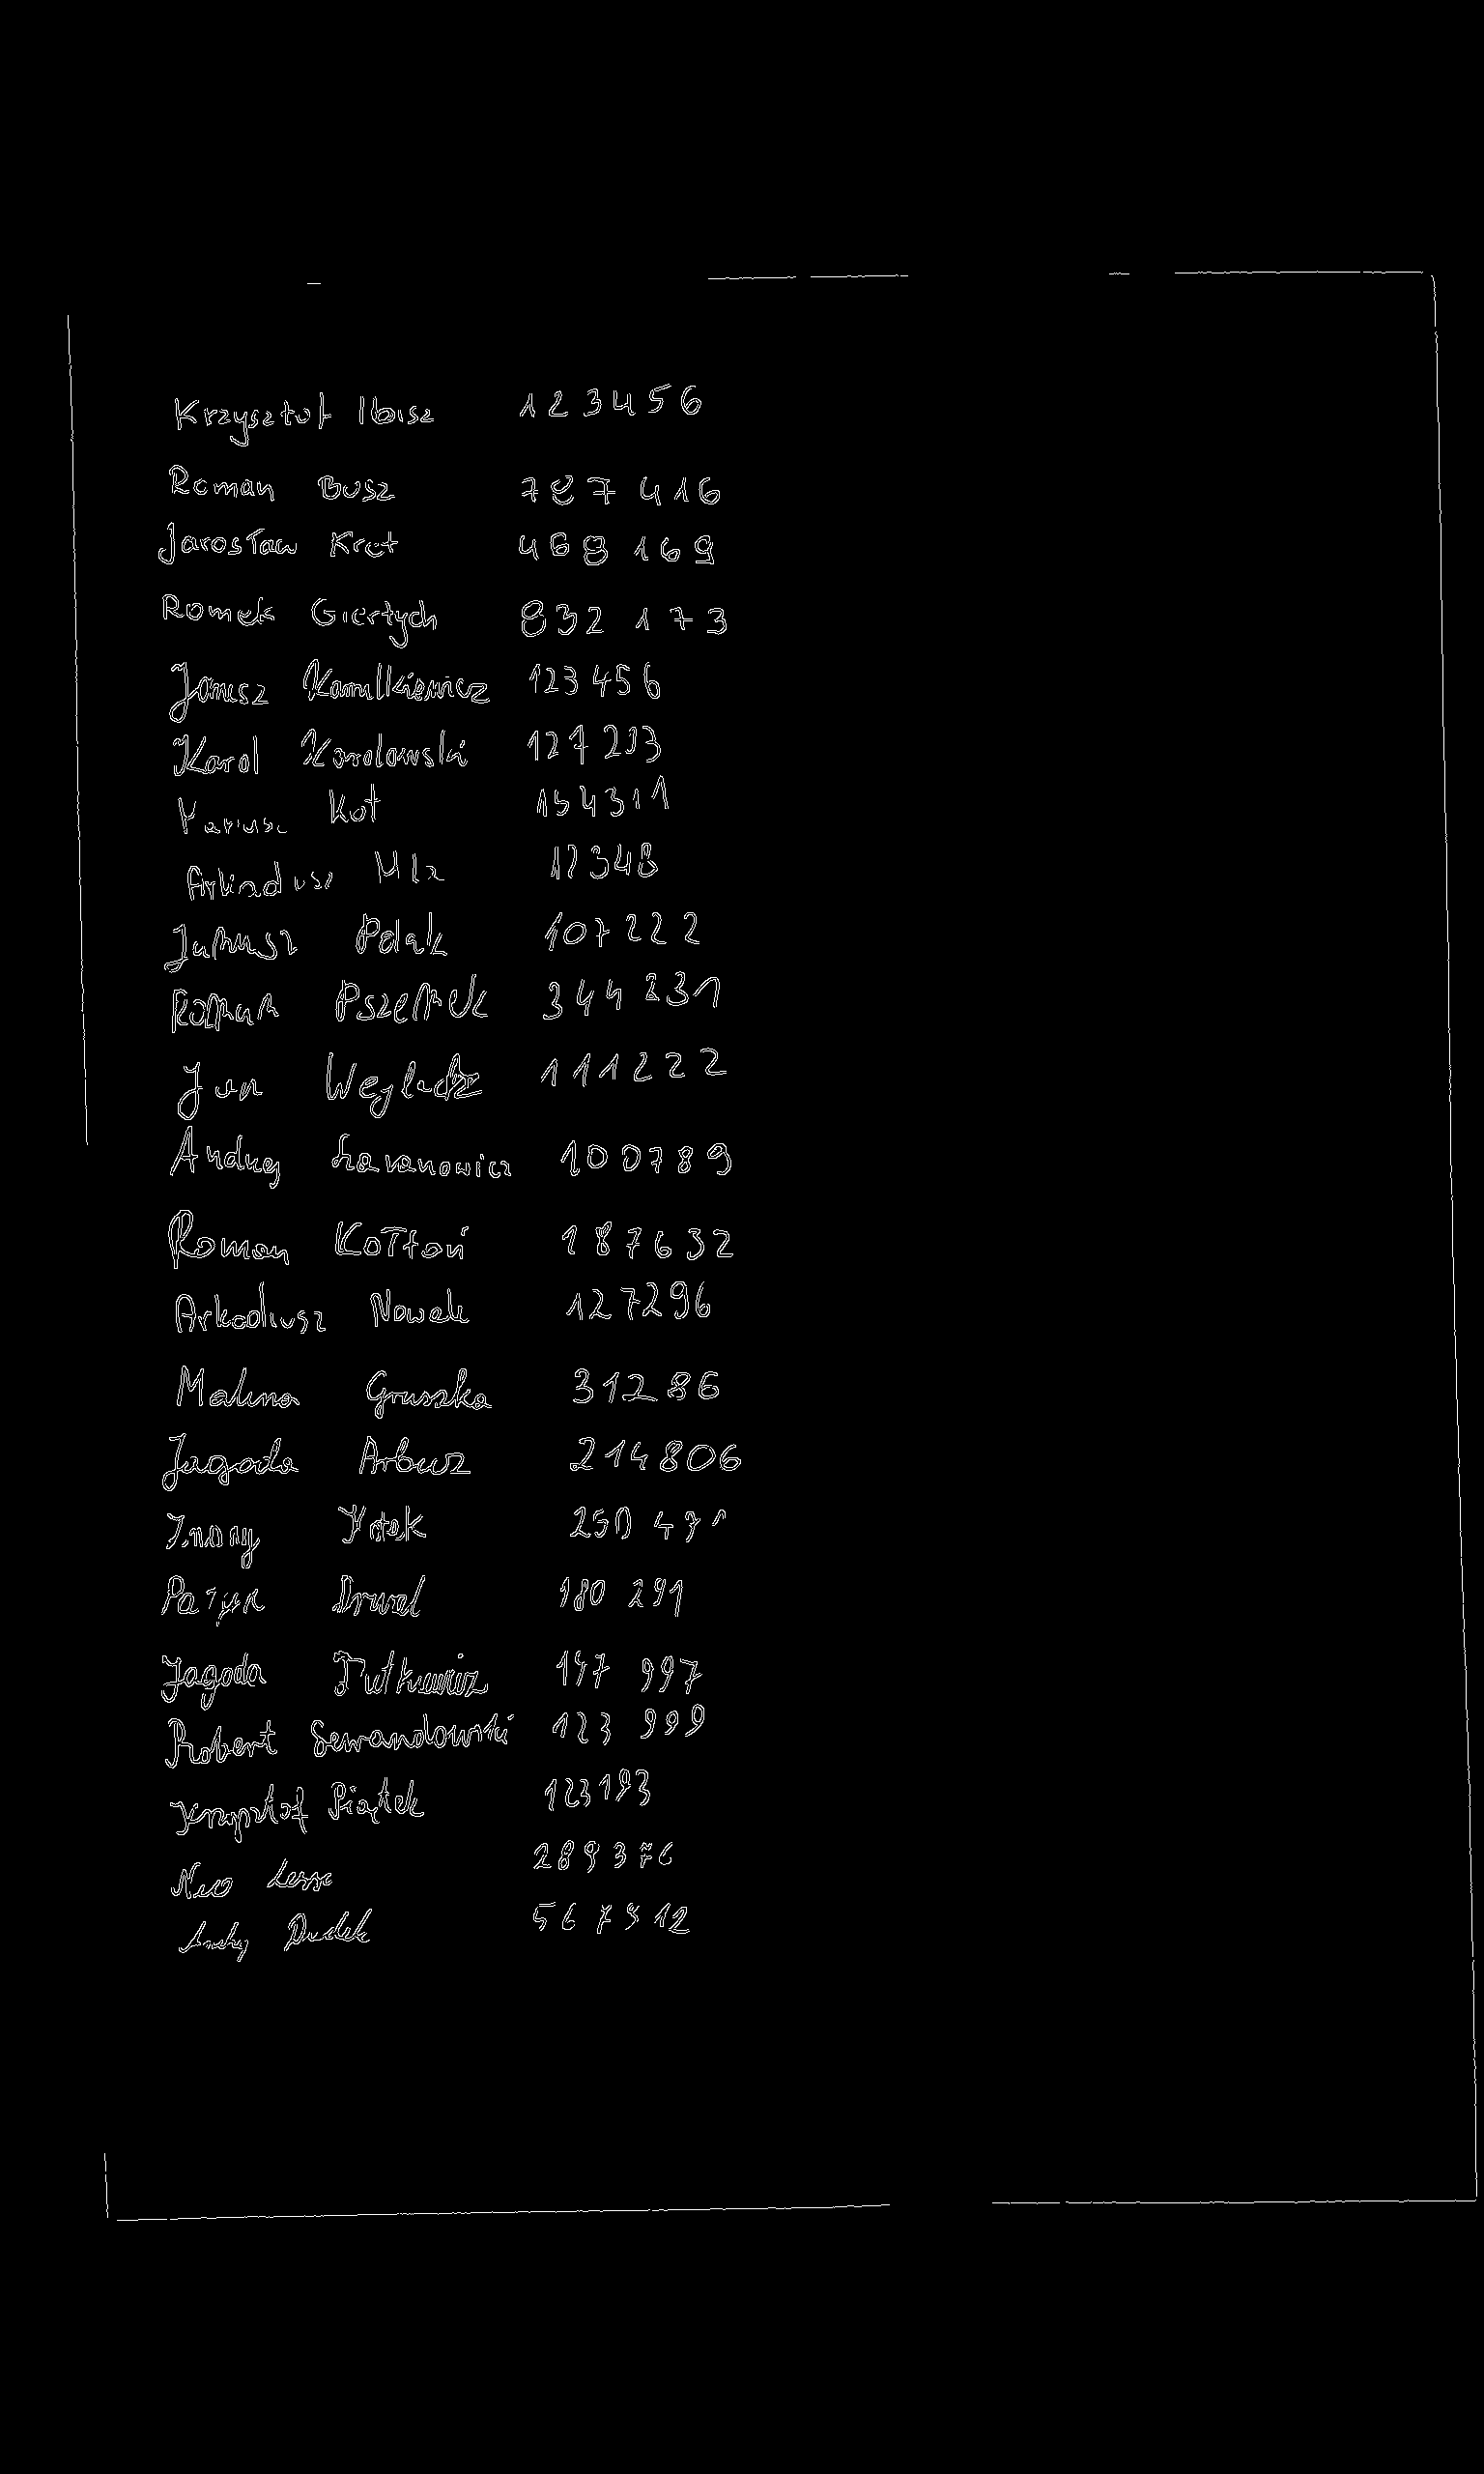 Krzysztof Ibisz 123456
Roman Busz 787416
Jarosław Kret 468169
Romek Giertych 832173
Janusz Kamilkiewicz 123456
Karol Karolowski 127213
Mariusz Kot 154311
Arkadiusz 12348
Janusz Polak 107222
Roman Pszemek 344231
Jan 111222
Andrzej 100789
Roman Kołtoń 187632
Arkadiusz Nowak 127296
Malina Gruszka 31286
Jagoda Arbuz 214806
180 291
Jagoda 147 997
Robert Lewandowski 123 999
Krzysztof Piątek 123193
289376
Dudek 567912